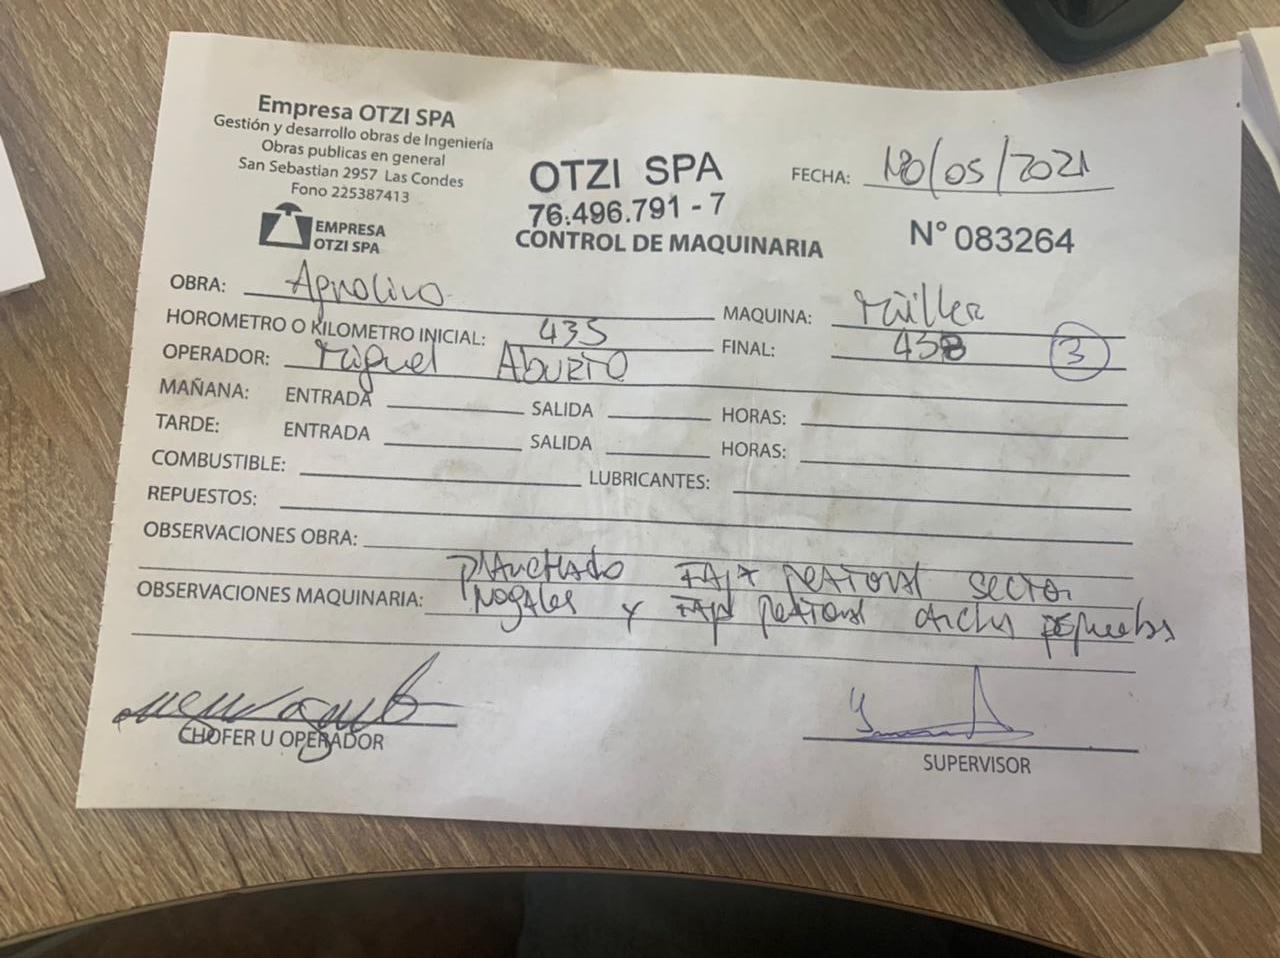 Empresa OTZI SPA
Gestión y desarrollo obras de Ingeniería
Obras publicas en general
San Sebastian 2957 Las Condes
Fono 225387413
EMPRESA
OTZI SPA
OTZI SPA
76.496.791 - 7
CONTROL DE MAQUINARIA
FECHA: /05/2021
N° 083264
OBRA:
MAQUINA:
HOROMETRO O KILOMETRO INICIAL: 435
FINAL: 438 3
OPERADOR: Miguel Aburto
MAÑANA: ENTRADA SALIDA HORAS:
TARDE: ENTRADA SALIDA HORAS:
COMBUSTIBLE: LUBRICANTES:
REPUESTOS:
OBSERVACIONES OBRA:
Planchado sector
OBSERVACIONES MAQUINARIA: Nogales y
CHOFER U OPERADOR
SUPERVISOR